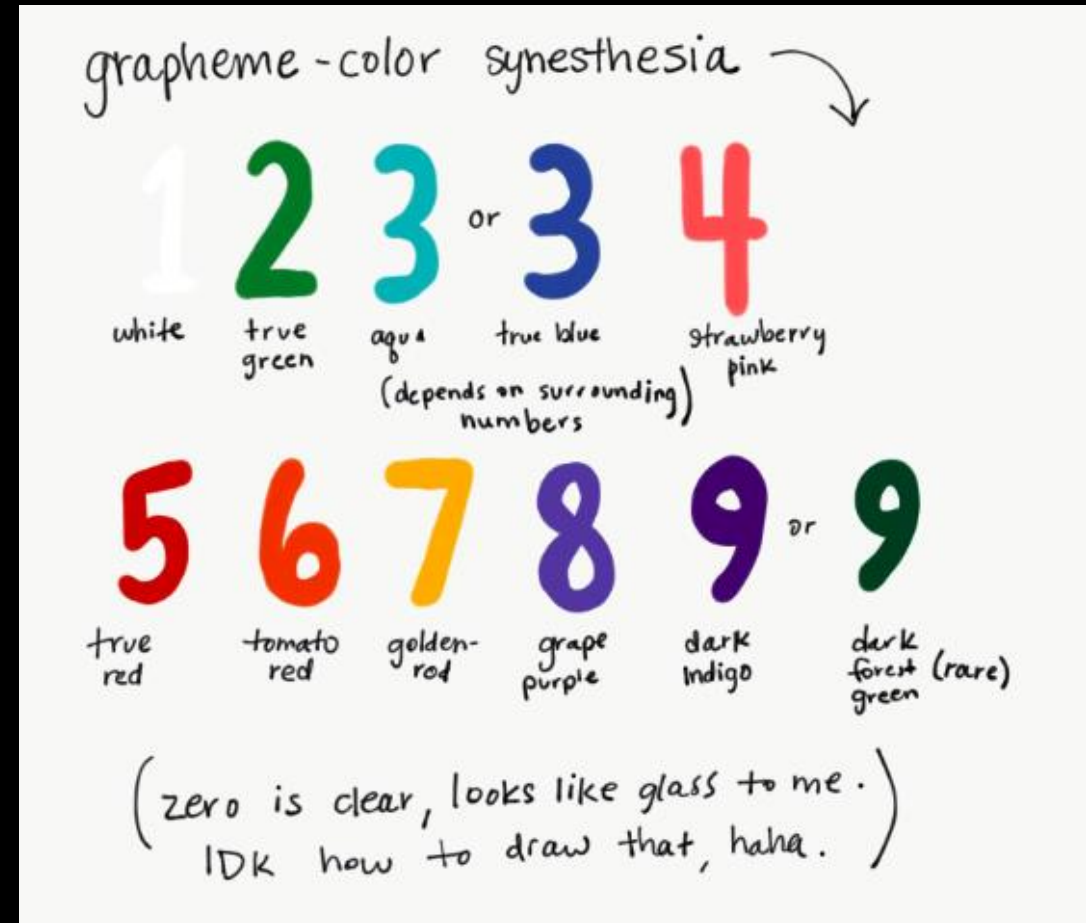 grapheme-color synesthesia
1 2 3 or 3 4
white true green aqua true blue strawberry pink
(depends on surrounding)
numbers
5 6 7 8 9 or 9
true red tomato red golden-rod grape purple dark indigo dark forest green (rare)
(zero is clear, looks like glass to me.
IDK how to draw that, haha.)